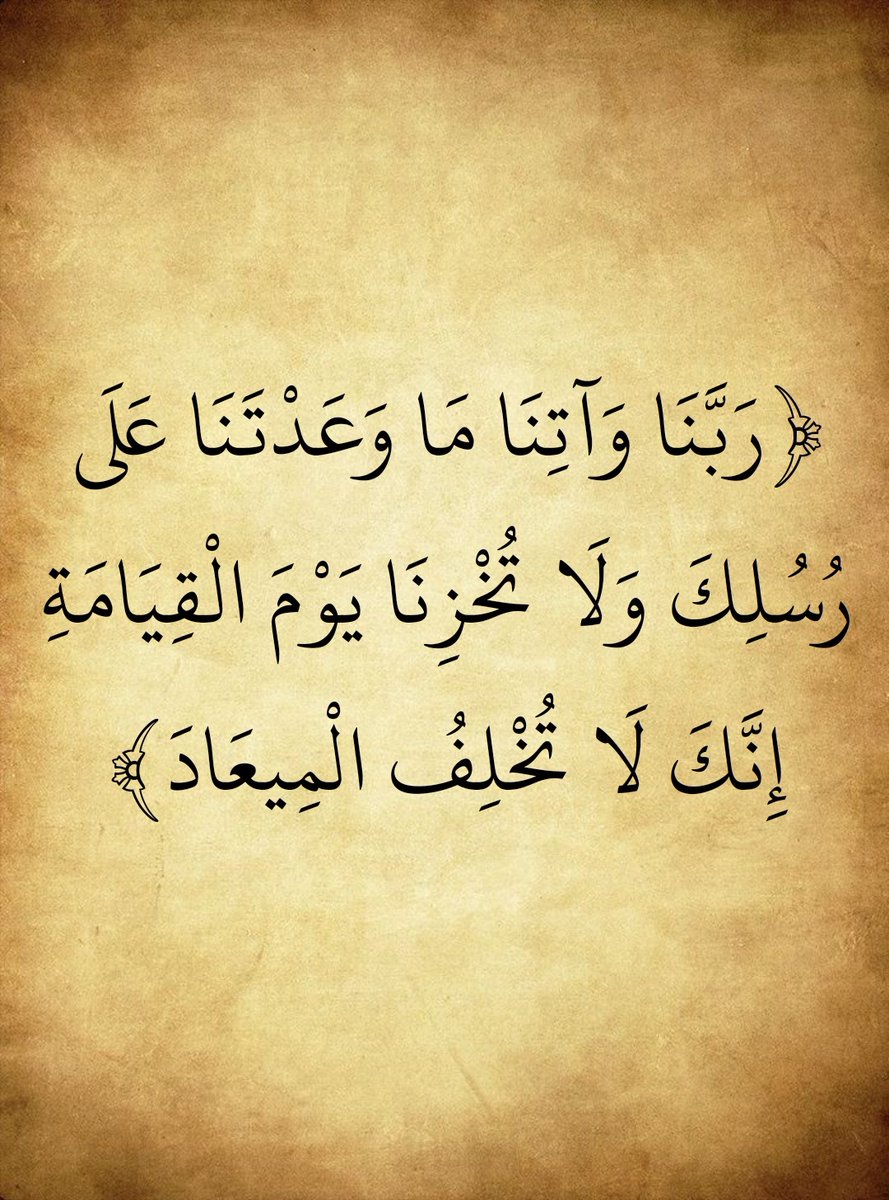 ﴿ رَبَّنَا وَآتِنَا مَا وَعَدْتَنَا عَلَى
رُسُلِكَ وَلَا تُخْزِنَا يَوْمَ الْقِيَامَةِ
إِنَّكَ لَا تُخْلِفُ الْمِيعَادَ ﴾